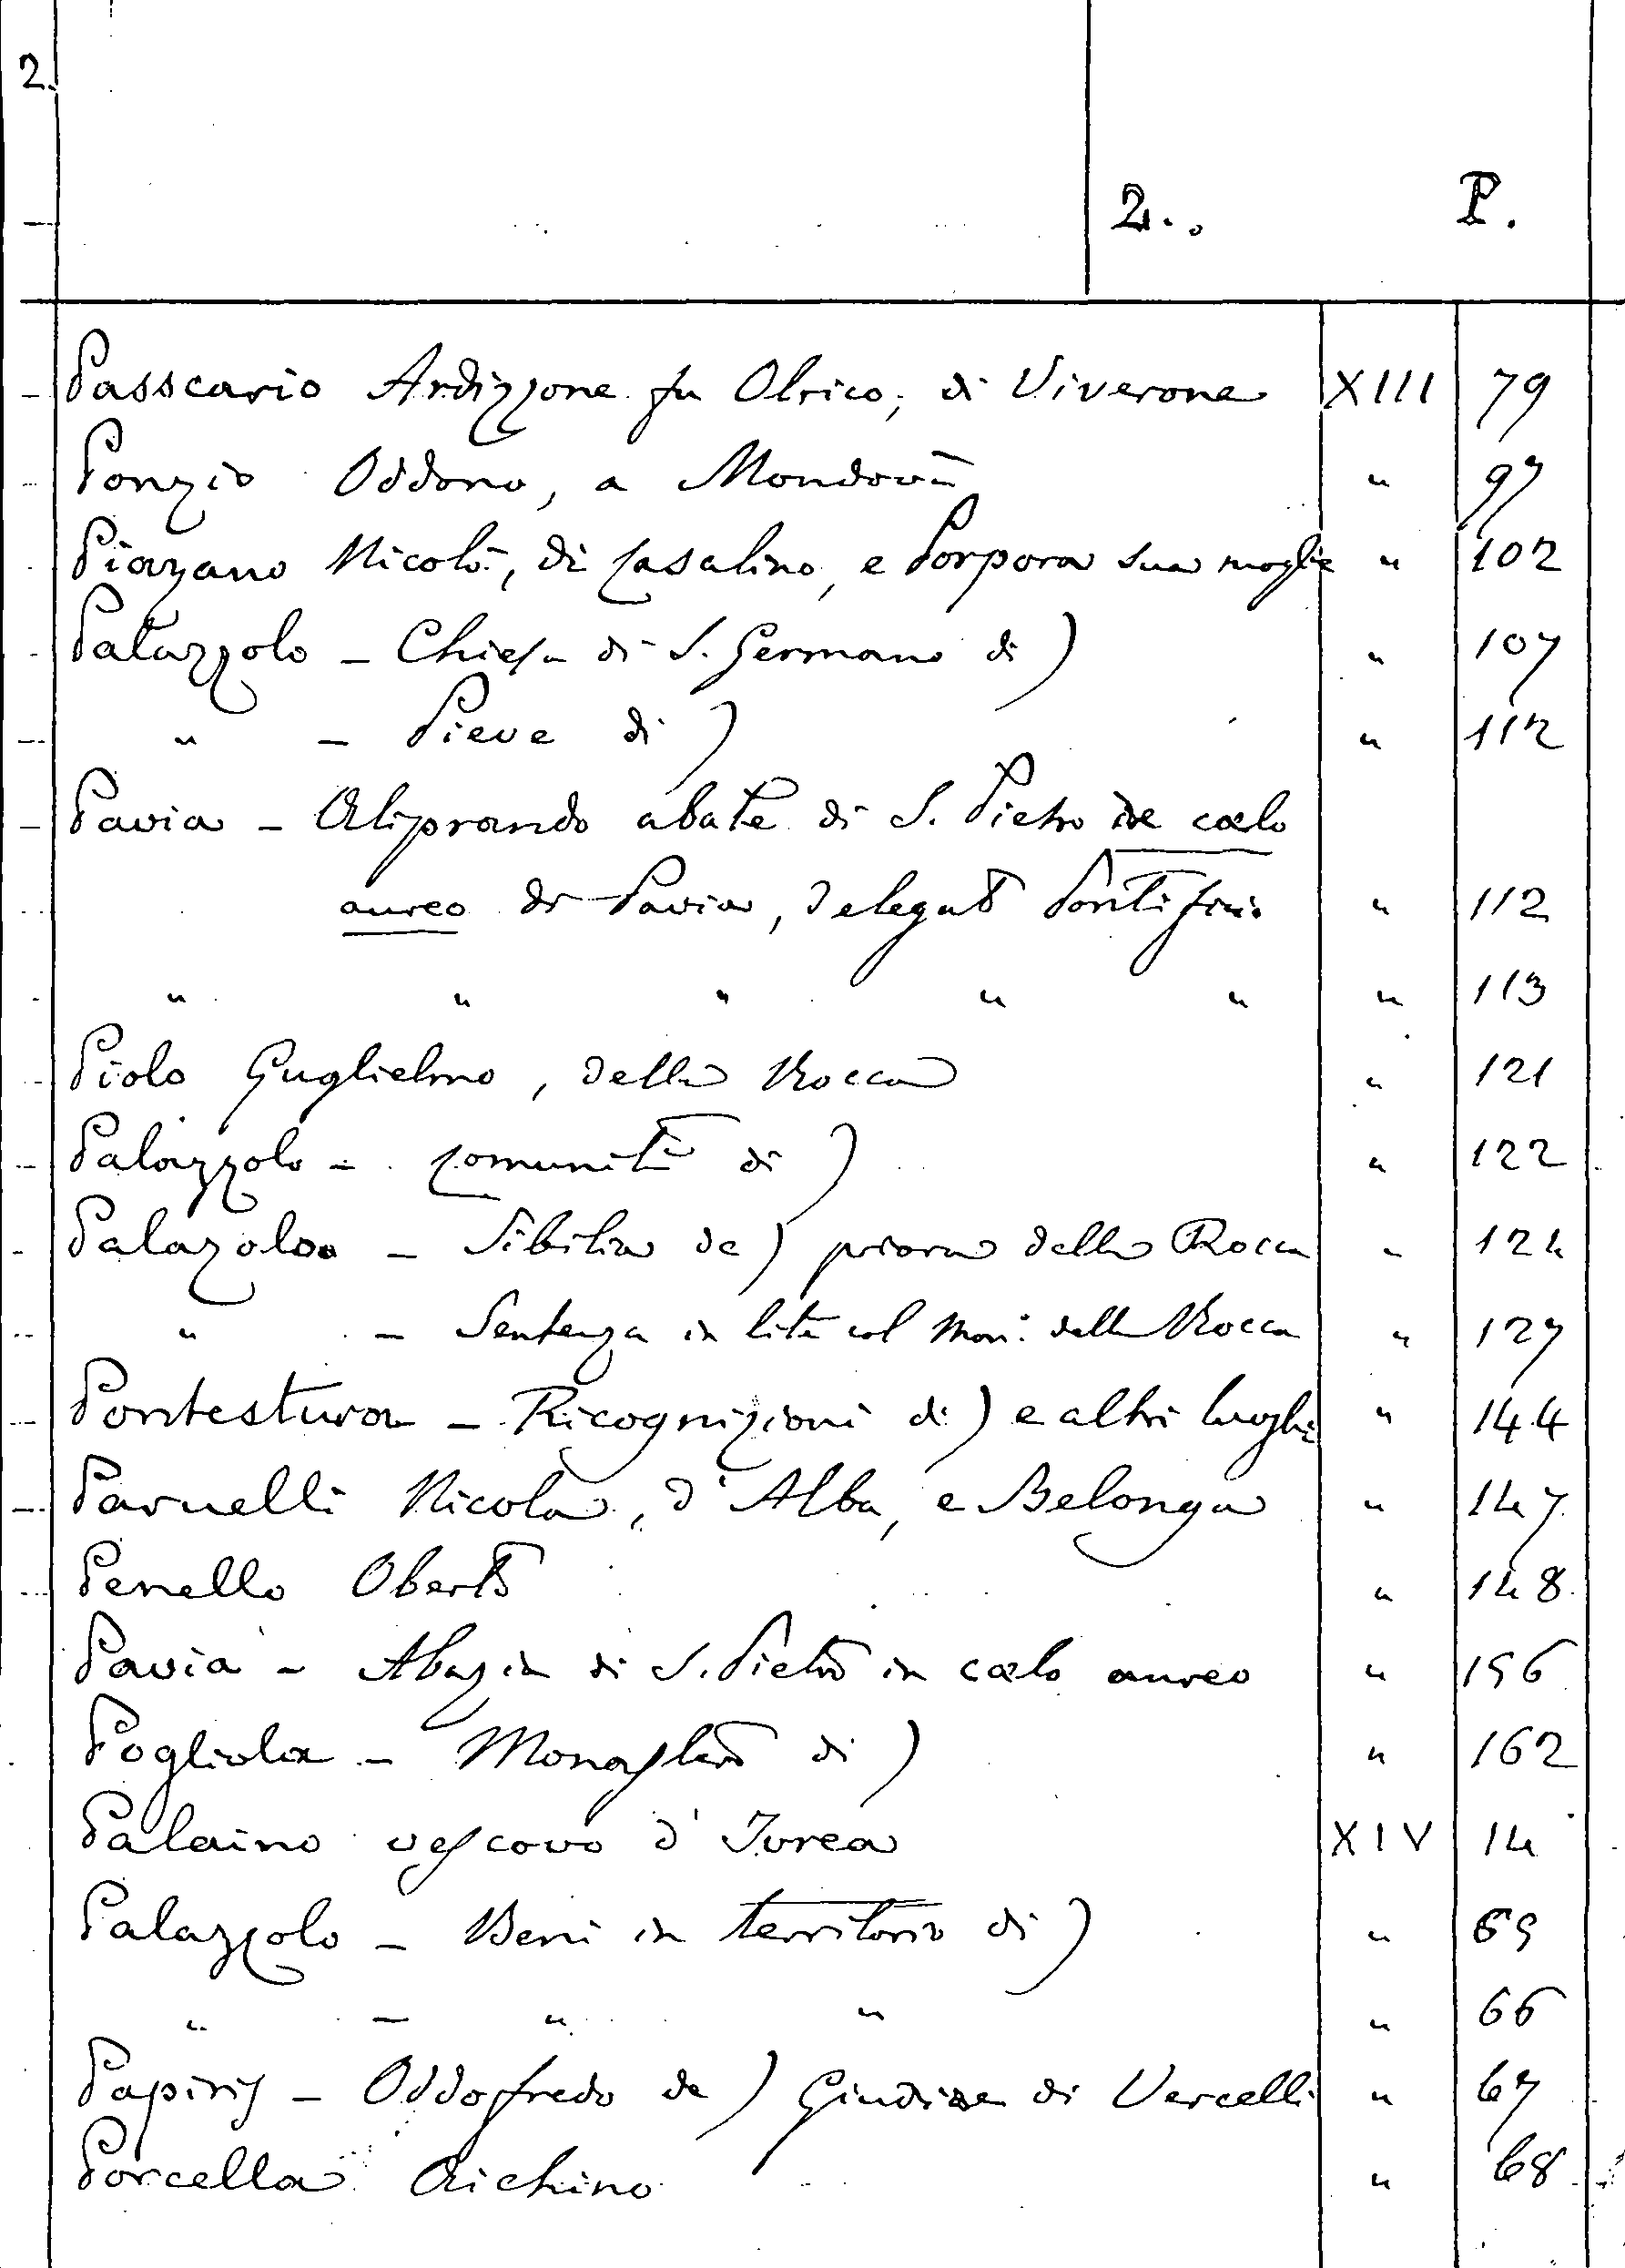 2.
2.. P.
Passcario Ardizzone fu Olrico, di Viverone XIII 79
Ponzio Oddono, a Mondovì " 97
Piazano Nicolò, di Casalino, e Porpora sua moglie " 102
Palazzolo - Chiesa di S. Germano di) " 107
" - Pieve di) " 112
Pavia - Aliprando abate di S. Pietro in coelo
aureo di Pavia, delegato Pontificio " 112
" " " " " " 113
Piolo Guglielmo, della Rocca " 121
Palazzolo - Comunità di) " 122
Palazolo - Sibilia de) priora della Rocca " 124
" - Sentenza in lite col Mon: della Rocca " 127
Pontestura - Ricognizioni di) e altri luoghi " 144
Paruelli Nicola, d'Alba, e Belonga " 147
Penello Oberto " 148
Pavia - Abazia di S. Pietro in coelo aureo " 156
Pogliola - Monastero di) " 162
Palaino vescovo d'Ivrea XIV 14
Palazzolo - Beni in territorio di) " 65
" - " " " 66
Papirij - Oddofredo de) Giudice di Vercelli " 67
Porcella Aichino " 68